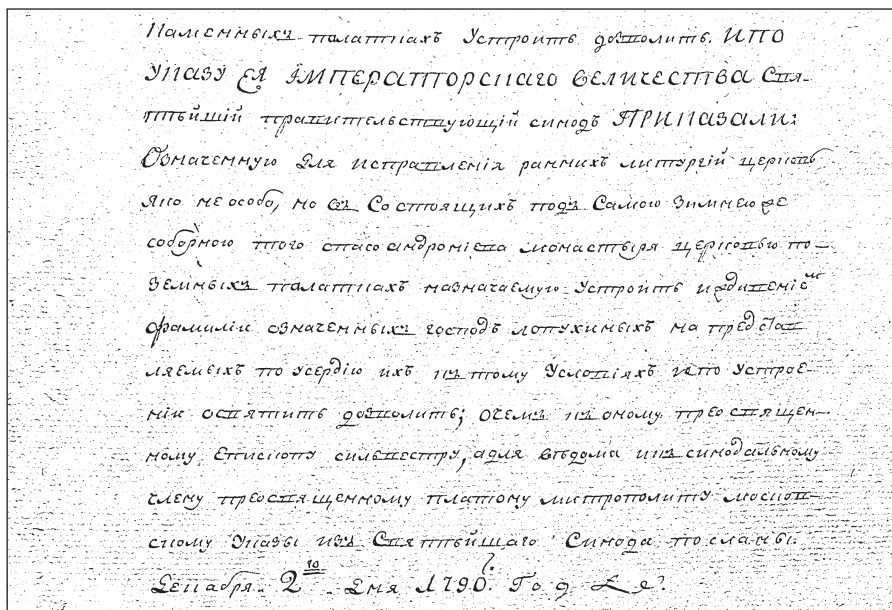 каменныхъ палатахъ устроить дозволить. И ПО
УКАЗУ ЕЯ ІМПЕРАТОРСКАГО ВЕЛИЧЕСТВА Свя-
тѣйшій правительствующій синодъ ПРИКАЗАЛИ:
Означенную для исправленія раннихъ литургій церковь
яко не особо, но въ Состоящихъ подъ Самою Зимнею же
соборною того спасоандроніева монастыря церковью по-
земныхъ палатахъ назначаемую устроить
фамиліи означенныхъ господъ лопухиныхъ на представ
ляемыхъ по усердію ихъ къ тому Условіяхъ и по устрое-
ніи освятить дозволить; о чемъ къ оному преосвящен-
ному Епископу сильвестру, а для вѣдома и къ синодальному
члену преосвященному платону митрополиту москов-
скому Указы изъ Святѣйшаго Синода посланы.
Декабря 2 го дня 1790. Года